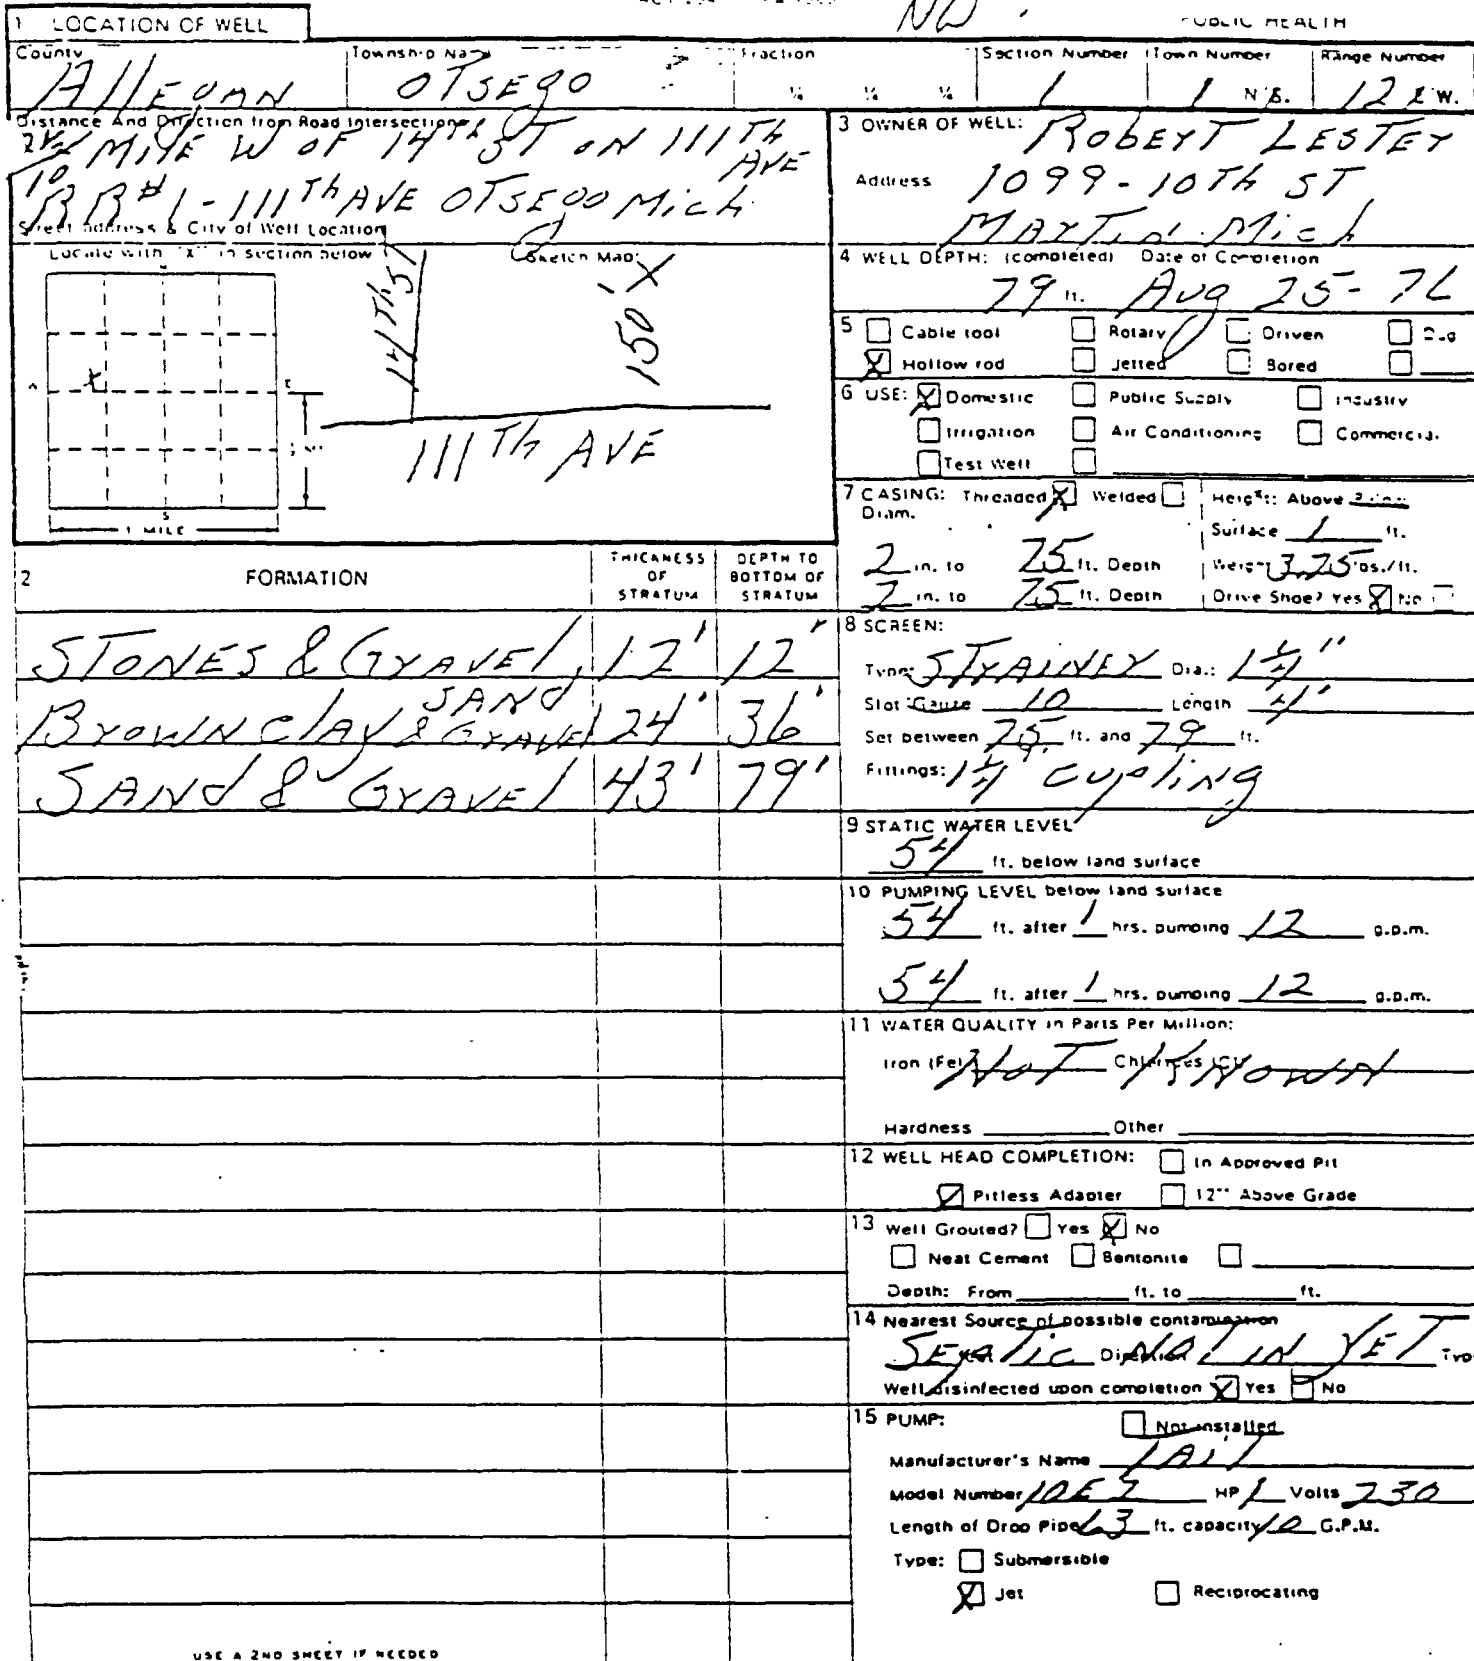 NO.
PUBLIC HEALTH
1 LOCATION OF WELL
County Township Name Fraction Section Number Town Number Range Number
Allegan OTSEgO ¼ ¼ ¼ 1 1 N/S. 12 E/W.
Distance And Direction from Road Intersections
MilE W OF 14Th ST ON 111Th AVE
RR#1 - 111Th AVE OTSEgO Mich
Street address & City of Well Location
Locate with "X" in section below Sketch Map:
X
1 MILE
14Th ST
150' X
111Th AVE
3 OWNER OF WELL: RobErT LESTEr
Address 1099 - 10Th ST
MArTin Mich
4 WELL DEPTH: (completed) Date of Completion
79 ft. Aug 25 - 76
5 Cable tool Rotary Driven Dug
X Hollow rod Jetted Bored
6 USE: X Domestic Public Supply Industry
Irrigation Air Conditioning Commercial
Test Well
7 CASING: Threaded X Welded Height: Above
Diam. Surface 1 ft.
2 in. to 75 ft. Depth Weight 3.75 lbs./ft.
2 in. to 75 ft. Depth Drive Shoe? Yes X No
2 FORMATION THICKNESS OF STRATUM DEPTH TO BOTTOM OF STRATUM
STONES & GrAvEl, 12' 12'
BrOWN ClAy SANd & GrAvEl 24' 36'
SANd & GrAvEl 43' 79'
8 SCREEN:
Type: STrAINEr Dia.: 1¼"
Slot/Gauze 10 Length 4'
Set between 75 ft. and 79 ft.
Fittings: 1¼" cupling
9 STATIC WATER LEVEL
54 ft. below land surface
10 PUMPING LEVEL below land surface
54 ft. after 1 hrs. pumping 12 g.p.m.
54 ft. after 1 hrs. pumping 12 g.p.m.
11 WATER QUALITY in Parts Per Million:
Iron (Fe) Chlorides (Cl)
NoT KNOWN
Hardness Other
12 WELL HEAD COMPLETION: In Approved Pit
X Pitless Adapter 12" Above Grade
13 Well Grouted? Yes X No
Neat Cement Bentonite
Depth: From ft. to ft.
14 Nearest Source of possible contamination
SEpTic NOT IN YET
feet Direction Type
Well disinfected upon completion X Yes No
15 PUMP: Not installed
Manufacturer's Name
Model Number HP 1 Volts 230
Length of Drop Pipe 63 ft. capacity 10 G.P.M.
Type: Submersible
X Jet Reciprocating
USE A 2ND SHEET IF NEEDED